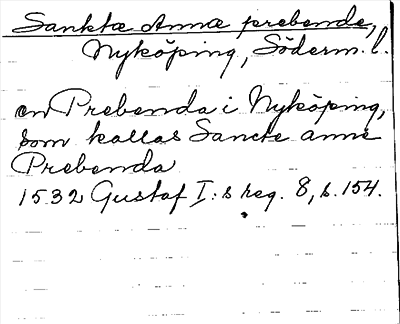 Sanktæ Annæ prebende,
Nyköping, Söderm. l.
en Prebenda i Nyköping,
som kallas Sancte anne
Prebenda
1532 Gustaf I:s reg. 8, s. 154.